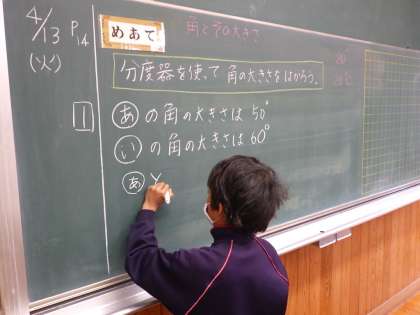 4/13
(火)
P14
角とその大きさ
めあて
分度器を使って 角の大きさをはかろう。
1
あの角の大きさは 50°
いの角の大きさは 60°
あ